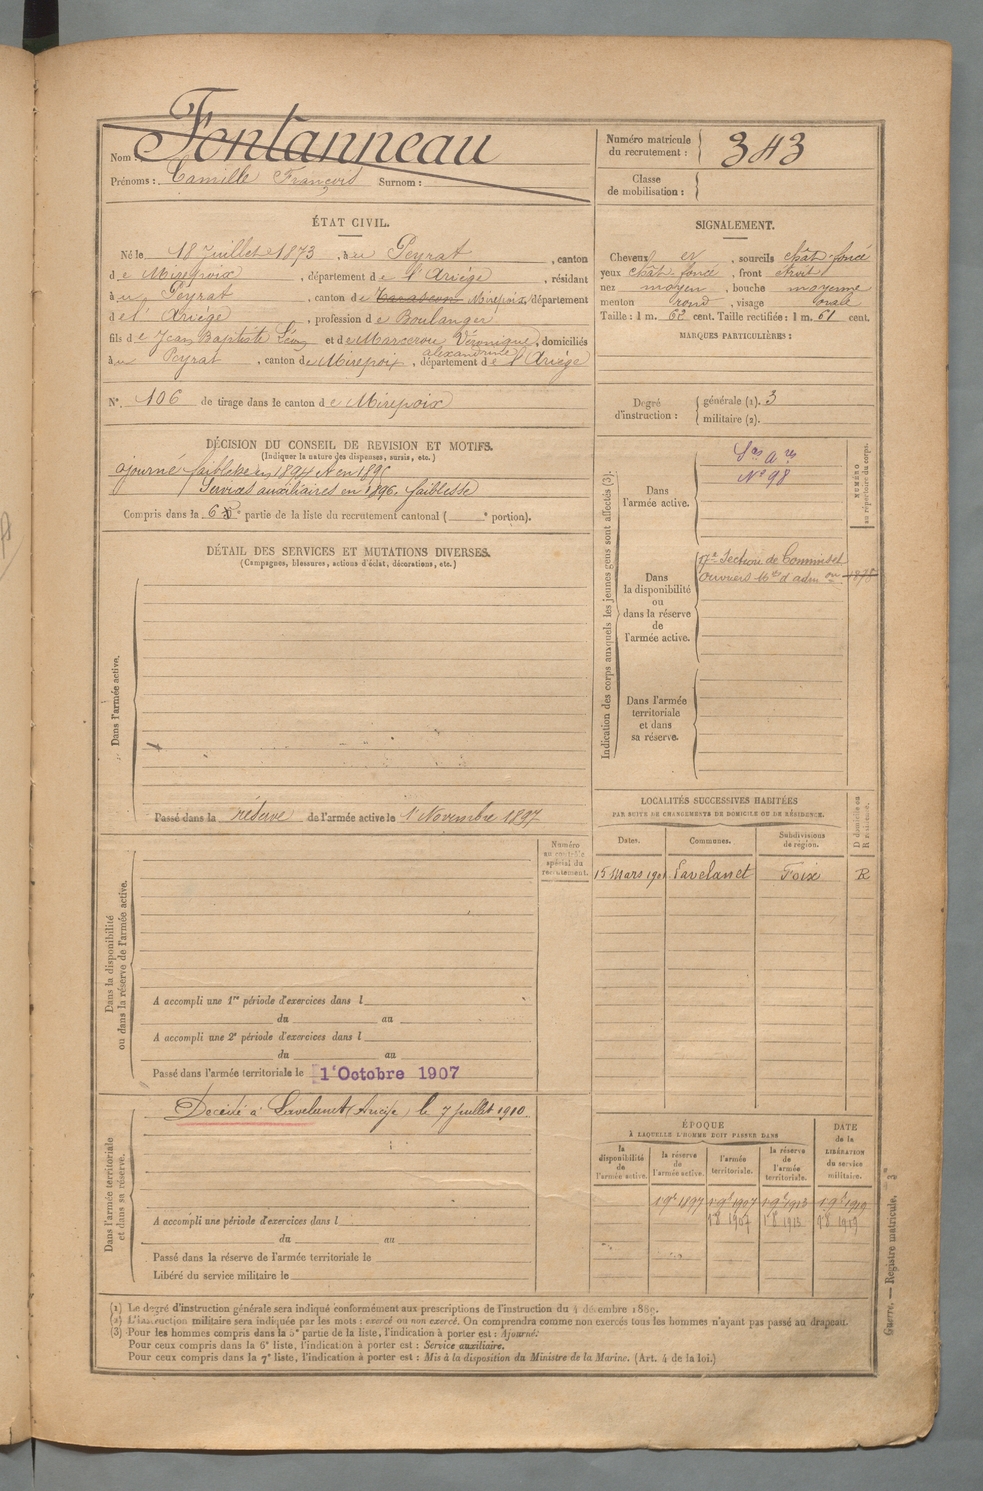 Nom : Fontanneau
Prénoms : Camille François Surnom :
Numéro matricule du recrutement : 343
Classe de mobilisation :
ÉTAT CIVIL.
Né le 18 Juillet 1873, à u Peyrat, canton
d e Mirepoix, département d e l'Ariége, résidant
à u Peyrat, canton d e Tarascon Mirepoix, département
d e l'Ariége, profession d e Boulanger
fils d e Jean Baptiste Léon et d e Marcerou Véronique alexandrine, domiciliés
à u Peyrat, canton d e Mirepoix, département d e l'Ariége
N° 106 de tirage dans le canton d e Mirepoix
SIGNALEMENT.
Cheveux et, sourcils chât-foncé
yeux chât-foncé, front étroit
nez moyen, bouche moyenne
menton rond, visage ovale
Taille : 1 m. 62 cent. Taille rectifiée : 1 m. 61 cent.
MARQUES PARTICULIÈRES :
Degré d'instruction : générale (1). 3
militaire (2).
DÉCISION DU CONSEIL DE REVISION ET MOTIFS.
(Indiquer la nature des dispenses, sursis, etc.)
ajourné faiblesse en 1894 et en 1895
Services auxiliaires en 1896. faiblesse
Compris dans la 6e partie de la liste du recrutement cantonal ( e portion).
DÉTAIL DES SERVICES ET MUTATIONS DIVERSES.
(Campagnes, blessures, actions d'éclat, décorations, etc.)
Dans l'armée active.
Passé dans la réserve de l'armée active le 1 Novembre 1897
Indication des corps auxquels les jeunes gens sont affectés (3).
NUMÉRO au répertoire du corps.
Dans l'armée active.
N° 98
Dans la disponibilité ou dans la réserve de l'armée active.
17e Section de Commis et
Ouvriers Mres d'admon
Dans l'armée territoriale et dans sa réserve.
LOCALITÉS SUCCESSIVES HABITÉES
PAR SUITE DE CHANGEMENTS DE DOMICILE OU DE RÉSIDENCE.
D domicile ou R résidence.
Dates. Communes. Subdivisions de région.
15 Mars 1901 Lavelanet Foix R
Numéro au contrôle spécial du recrutement.
Dans la disponibilité ou dans la réserve de l'armée active.
A accompli une 1re période d'exercices dans l
du au
A accompli une 2e période d'exercices dans l
du au
Passé dans l'armée territoriale le 1er Octobre 1907
Dans l'armée territoriale et dans sa réserve.
Décédé à Lavelanet (Ariège) le 7 juillet 1910
A accompli une période d'exercices dans l
du au
Passé dans la réserve de l'armée territoriale le
Libéré du service militaire le
ÉPOQUE
À LAQUELLE L'HOMME DOIT PASSER DANS
DATE de la LIBÉRATION du service militaire.
la disponibilité de l'armée active.
la réserve de l'armée active.
l'armée territoriale.
la réserve de l'armée territoriale.
1 9bre 1897 1 9bre 1907 1 9bre 1913 1 9bre 1919
1 8 1907 1 8 1913 1 8 1919
(1) Le degré d'instruction générale sera indiqué conformément aux prescriptions de l'instruction du 4 décembre 1889.
(2) L'instruction militaire sera indiquée par les mots : exercé ou non exercé. On comprendra comme non exercés tous les hommes n'ayant pas passé au drapeau.
(3) Pour les hommes compris dans la 5e partie de la liste, l'indication à porter est : Ajourné.
Pour ceux compris dans la 6e liste, l'indication à porter est : Service auxiliaire.
Pour ceux compris dans la 7e liste, l'indication à porter est : Mis à la disposition du Ministre de la Marine. (Art. 4 de la loi.)
Guerre. — Registre matricule.